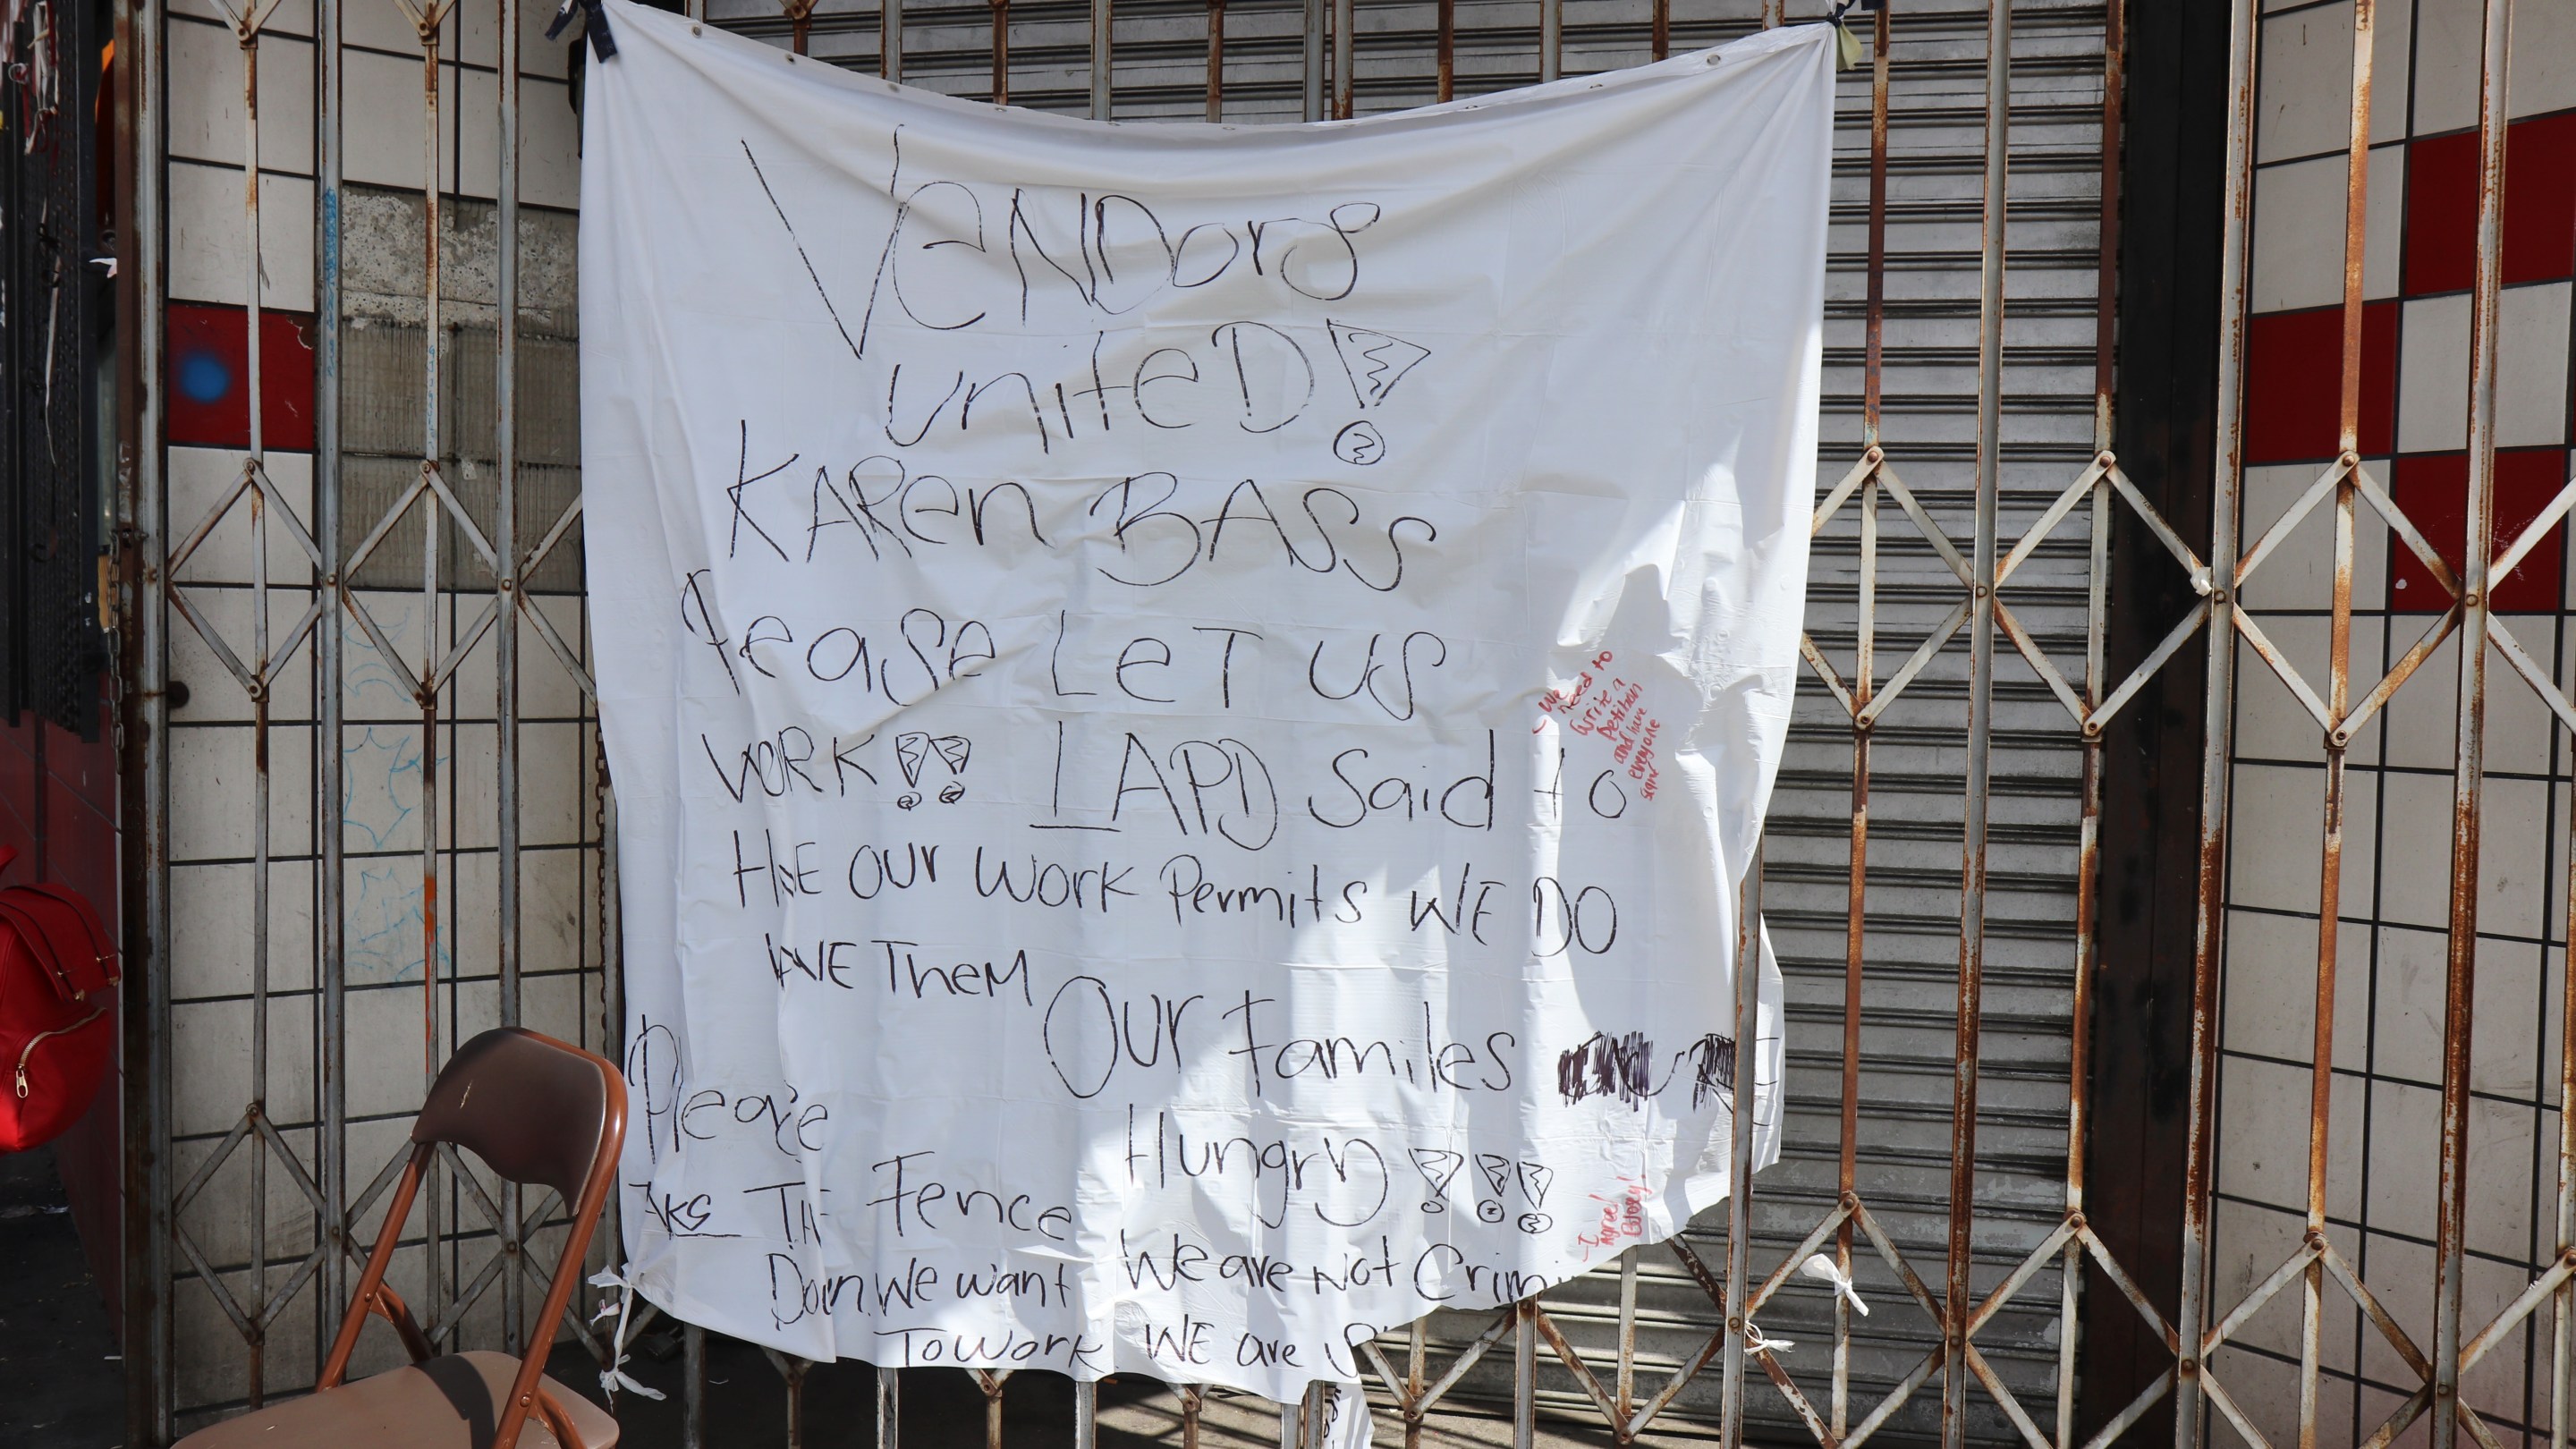 VeNDors
uniteD!
KAREn BASS
Please LeT US
WORK!! LAPD Said to
HAVE our work Permits WE DO
HAVE TheM
Our Familes
Hungry!!!
We are Not Crimi
WE are
Please
TAKE THE Fence
Down. We want
To work
- We
need to
write a
petition
and have
everyone
sign
- I
agree!
Buoy!